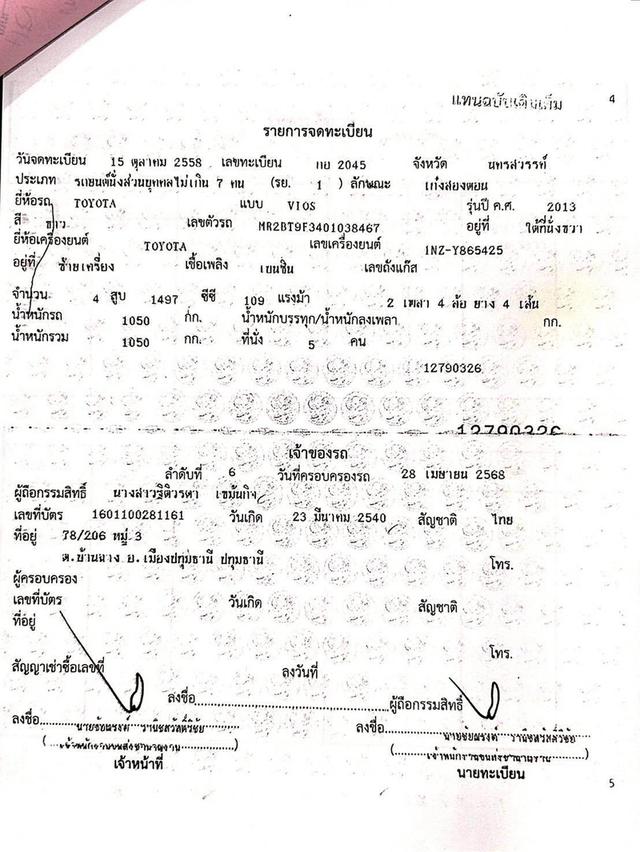 แทนฉบับเดิมเต็ม 4
รายการจดทะเบียน
วันจดทะเบียน 15 ตุลาคม 2558 เลขทะเบียน กย 2045 จังหวัด นครสวรรค์
ประเภท รถยนต์นั่งส่วนบุคคลไม่เกิน 7 คน (รย. 1 ) ลักษณะ เก๋งสองตอน
ยี่ห้อรถ TOYOTA แบบ VIOS รุ่นปี ค.ศ. 2013
สี ขาว เลขตัวรถ MR2BT9F3401038467 อยู่ที่ ใต้ที่นั่งขวา
ยี่ห้อเครื่องยนต์ TOYOTA เลขเครื่องยนต์ 1NZ-Y865425
อยู่ที่ ซ้ายเครื่อง เชื้อเพลิง เบนซิน เลขถังแก๊ส
จำนวน 4 สูบ 1497 ซีซี 109 แรงม้า 2 เพลา 4 ล้อ ยาง 4 เส้น
น้ำหนักรถ 1050 กก. น้ำหนักบรรทุก/น้ำหนักลงเพลา กก.
น้ำหนักรวม 1050 กก. ที่นั่ง 5 คน
12790326
12790326
เจ้าของรถ
ลำดับที่ 6 วันที่ครอบครองรถ 28 เมษายน 2568
ผู้ถือกรรมสิทธิ์ นางสาวฐิติวรดา เขม้นกิจ
เลขที่บัตร 1601100281161 วันเกิด 23 มีนาคม 2540 สัญชาติ ไทย
ที่อยู่ 78/206 หมู่ 3
ต.บ้านฉาง อ.เมืองปทุมธานี ปทุมธานี โทร.
ผู้ครอบครอง
เลขที่บัตร วันเกิด สัญชาติ
ที่อยู่
โทร.
สัญญาเช่าซื้อเลขที่ ลงวันที่
ลงชื่อ ผู้ถือกรรมสิทธิ์
ลงชื่อ ลงชื่อ
เจ้าหน้าที่ นายทะเบียน
5